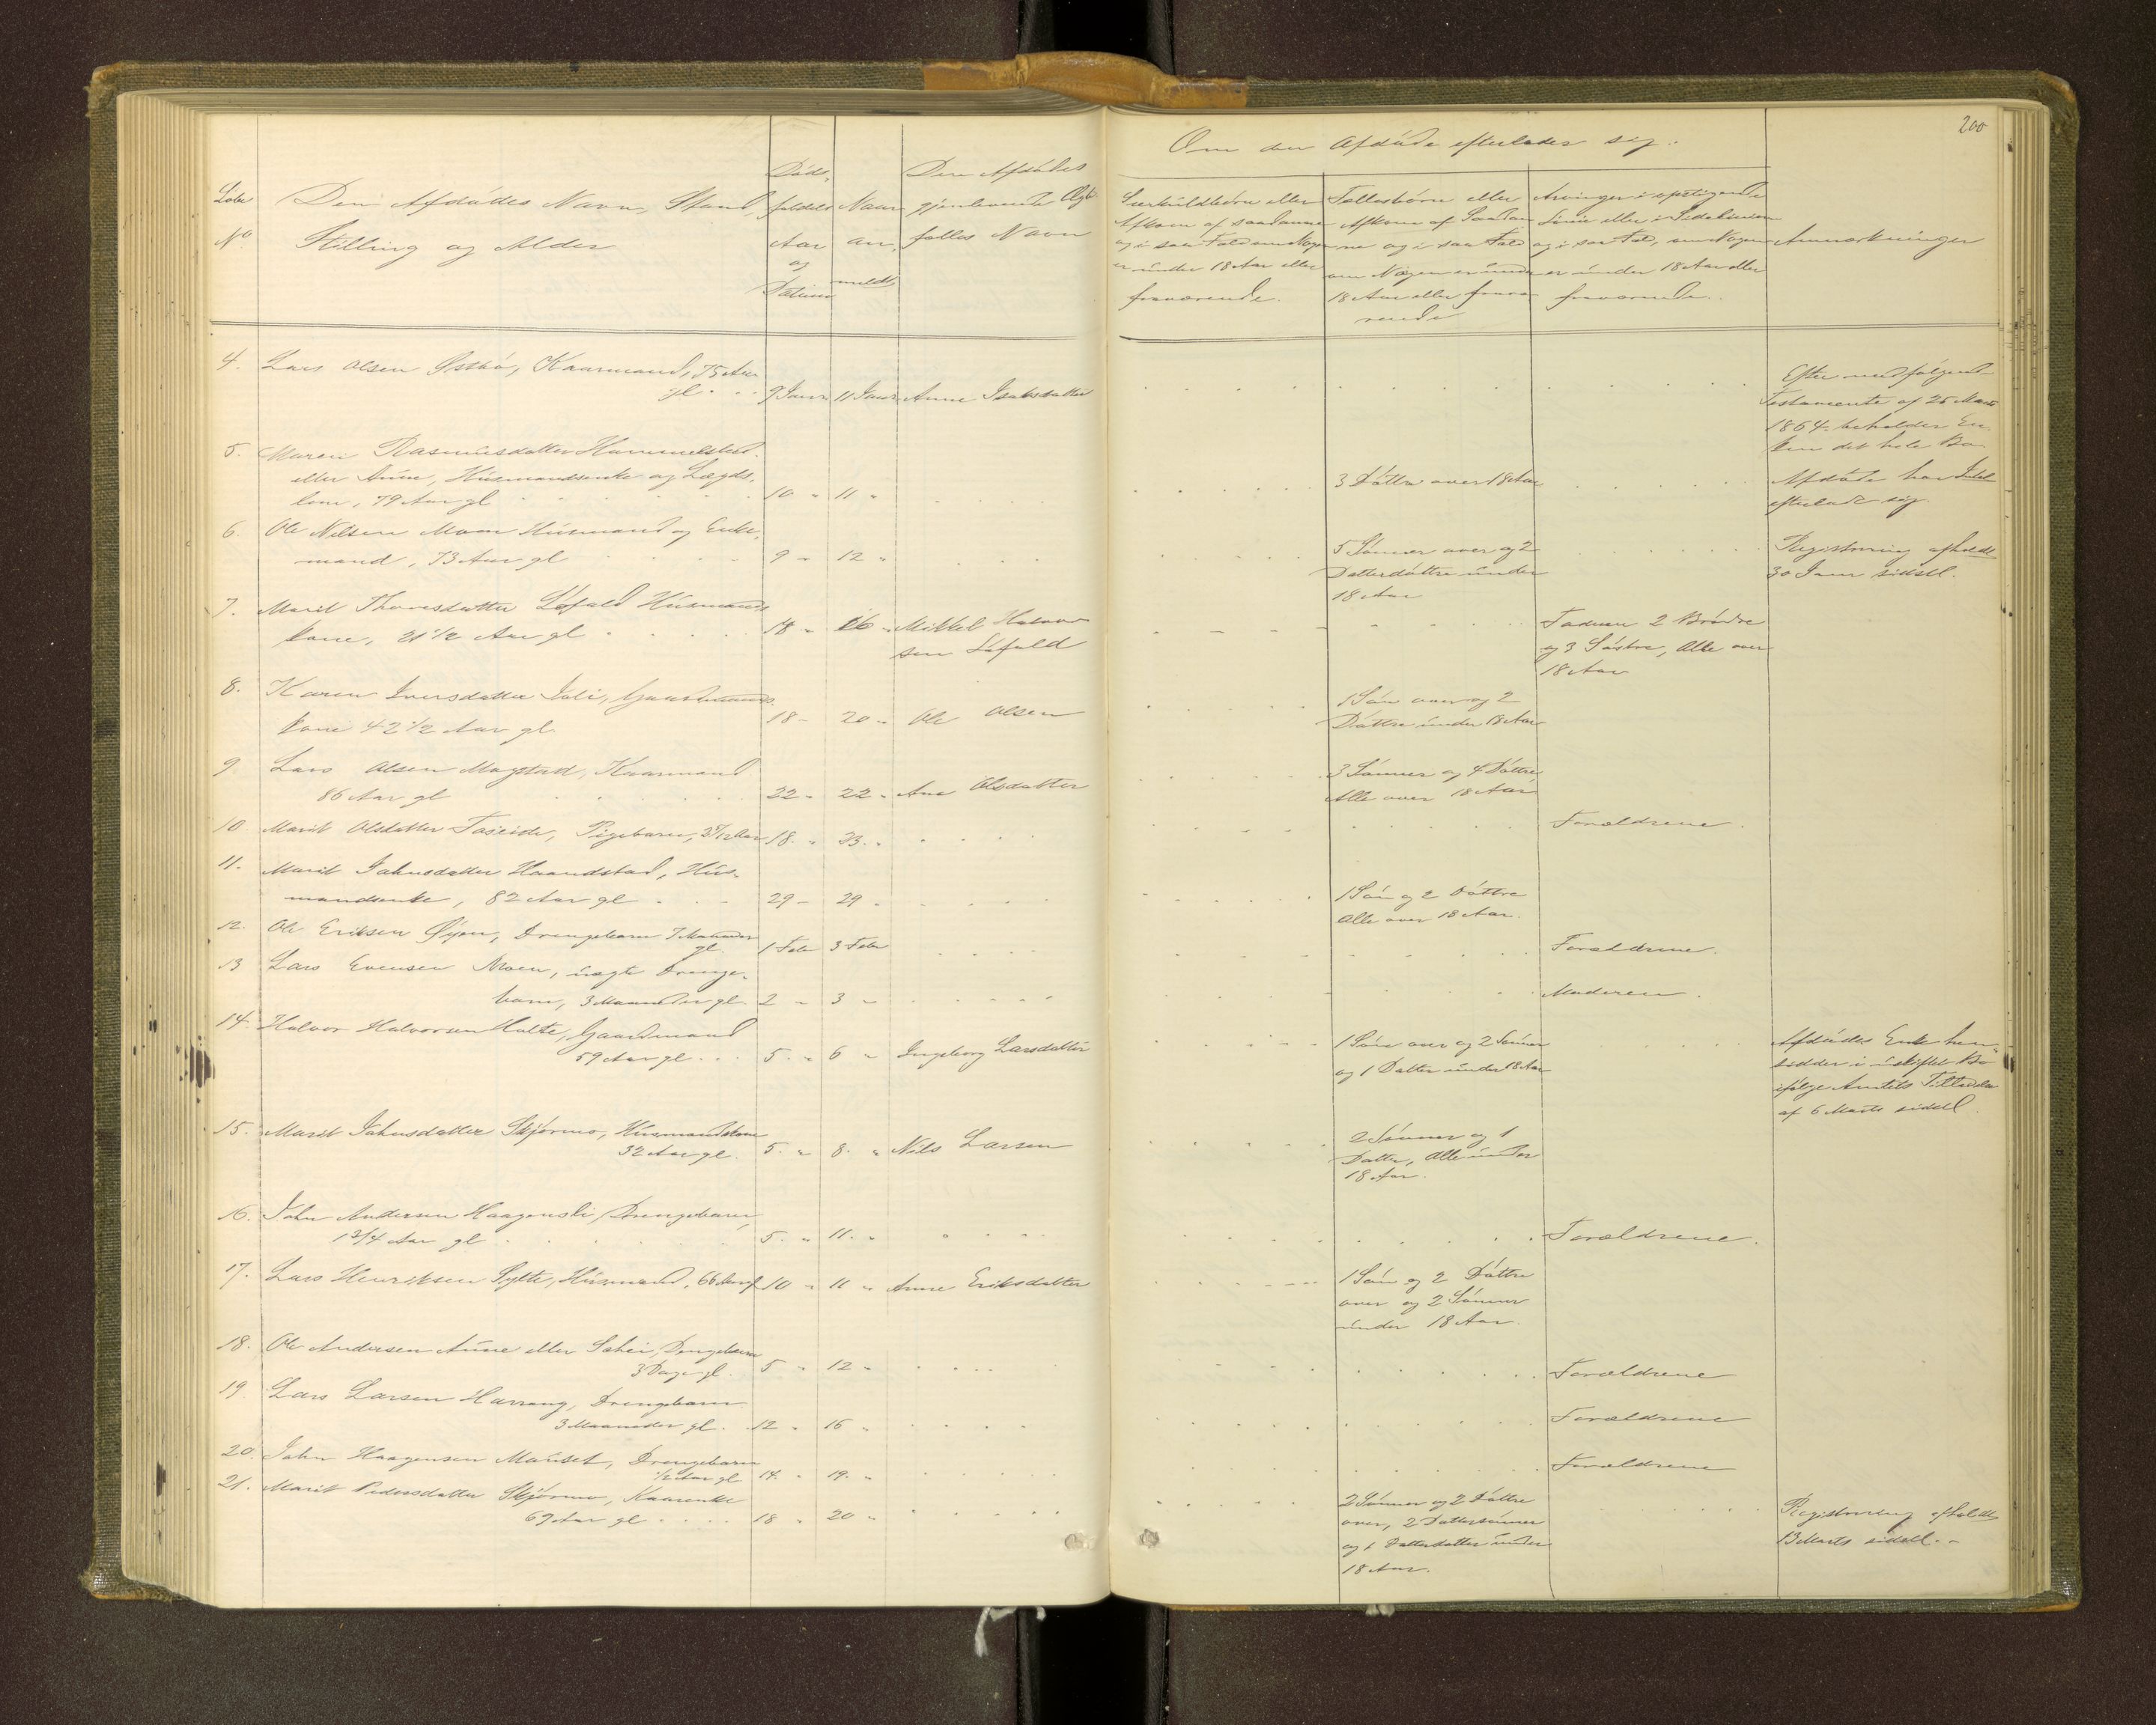 200
Om den Afdøde efterlader sig:
Løbe
No
Den Afdødes Navn, Stand,
Stilling og Alder
Døds-
faldets
Aar
og
Datum
Naar
an-
meldt
Den Afdødes
gjenlevende Ægte-
fælles Navn
Særkuldbørn eller
Afkom af saadanne
og i saa Fald om Nogen
er under 18 Aar eller
fraværende.
Fællesbørn eller
Afkom af Saadan
ne og i saa Fald
om Nogen er under
18 Aar eller fravæ
rende
Arvinger i opstigende
Linie eller i Sidelinien
og i saa Fald, om Nogen
er under 18 Aar eller
fraværende.
Anmærkninger
4. Lars Olsen Østbø, Kaarmand, 75 Aar
gl. 9 Janr 11 Janr Anne Isaksdatter
Efter medfølgende
Testamente af 25 Marts
1864 beholder En-
ken det hele Bo
5. Maren Rasmusdatter Hammelstad
eller Aune, Husmandsenke og Lægds-
lem, 79 Aar gl 10 " 11 "
3 Døttre over 18 Aar
Afdøde har Intet
efterladt sig.
6. Ole Nilsen Moen Husmand og Enke-
mand, 73 Aar gl 9 " 12 "
5 Sønner over og 2
Datterdøttre under
18 Aar
Registrering afholdt
30 Janr sidstl.
7. Marit Thoresdatter Løfald Husmands
kone, 21 1/2 Aar gl 18 " 16 " Mikkel Halvor
sen Løfald
Faderen 2 Brødre
og 3 Søstre, Alle over
18 Aar
8. Karen Iversdatter Joli, Gaardmands-
kone 42 1/2 Aar gl. 18 - 20 " Ole Olsen
1 Søn over og 2
Døttre under 18 Aar
9 Lars Olsen Mogstad, Kaarmand
86 Aar gl 22 - 22 - Ane Olsdatter
3 Sønner og 4 Døttre,
Alle over 18 Aar
10 Marit Olsdatter, Pigebarn, 18. " 23. "
Forældrene.
11. Marit Johnsdatter Haandstad, Hus-
mandsenke, 82 Aar gl 29 - 29 -
1 Søn og 2 Døttre
Alle over 18 Aar.
12. Ole Eriksen Øyen, Drengebarn 7 Maaneder
gl. 1 Febr 3 Febr
Forældrene.
13 Lars Evensen Moen, uægte Drenge-
barn, 3 Maaneder gl. 2 " 3 "
Moderen.
14. Halvor Halvorsen Holte, Gaardmand
59 Aar gl. 5. " 6 " Ingeborg Larsdatter
1 Søn over og 2 Sønner
og 1 Datter under 18 Aar
Afdødes Enke hen-
sidder i uskiftet Bo
ifølge Amtets Tilladelse
af 6 Marts sidstl.
15. Marit Johnsdatter Skjørmo, Husmandskone
32 Aar gl. 5. " 8. " Nils Larsen
2 Sønner og 1
Datter, Alle under
18 Aar.
16. John Andersen Haagensli, Drengebarn,
1 3/4 Aar gl 5. " 11. "
Forældrene.
17. Lars Henriksen Sylte, Husmand, 66 Aar gl 10 " 11 " Anne Eriksdatter
1 Søn og 2 Døttre
over og 2 Sønner
under 18 Aar.
18. Ole Andersen Aune eller, Drengebarn
3 Dage gl. 5 " 12 "
Forældrene
19. Lars Larsen Harrang, Drengebarn
3 Maaneder gl. 12 " 16 "
Forældrene
20. John Haagensen Mauset, Drengebarn
1/2 Aar gl 14. " 19. "
Forældrene
21. Marit Pedersdatter Skjørmo, Kaarenke
69 Aar gl 18 " 20 "
2 Sønner og 2 Døttre
over, 2 Dattersønner
og 1 Datterdatter under
18 Aar.
Registrering afholdt
13 Marts sidstl.